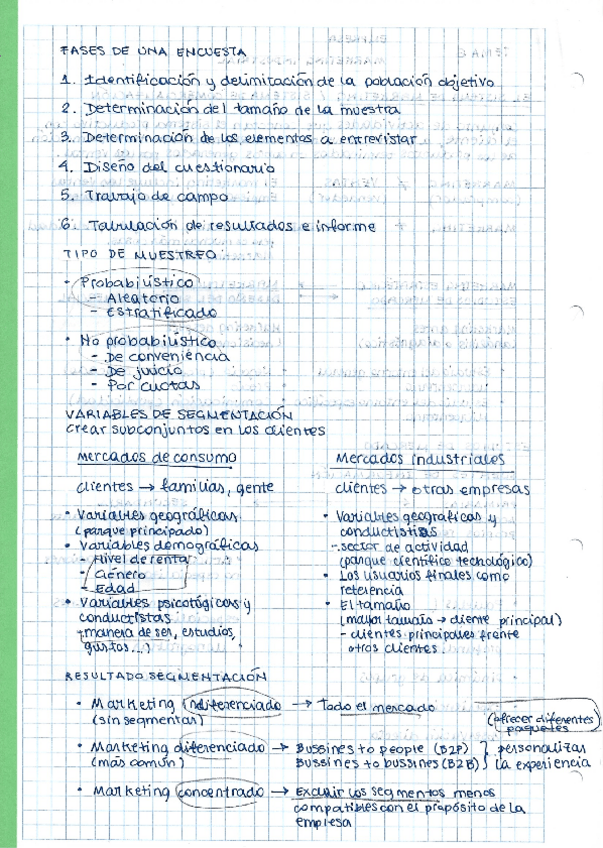 FASES DE UNA ENCUESTA
1. Identificación y delimitación de la población objetivo
2. Determinación del tamaño de la muestra
3. Determinación de los elementos a entrevistar
4. Diseño del cuestionario
5. Trabajo de campo
6. Tabulación de resultados e informe
TIPO DE MUESTREO
• Probabilístico
- Aleatorio
- Estratificado
• No probabilístico
- De conveniencia
- De juicio
- Por cuotas
VARIABLES DE SEGMENTACIÓN
Crear subconjuntos en los clientes
Mercados de consumo
clientes → familias, gente
• Variables geográficas
(parque principado)
• Variables demográficas
- Nivel de renta
- Género
- Edad
• Variables psicológicas y
conductistas
- manera de ser, estudios,
gustos...)
Mercados industriales
clientes → otras empresas
• Variables geográficas y
conductistas
- sector de actividad
(parque científico tecnológico)
• Los usuarios finales como
referencia
• El tamaño
(mayor tamaño → cliente principal)
- clientes principales frente
otros clientes
RESULTADO SEGMENTACIÓN
• Marketing indiferenciado → Todo el mercado
(sin segmentar)
(ofrecer diferentes
paquetes
• Marketing diferenciado → Bussines to people (B2P) } personalizar
(más común) Bussines to bussines (B2B) } la experiencia
• Marketing concentrado → Excluir los segmentos menos
compatibles con el propósito de la
empresa